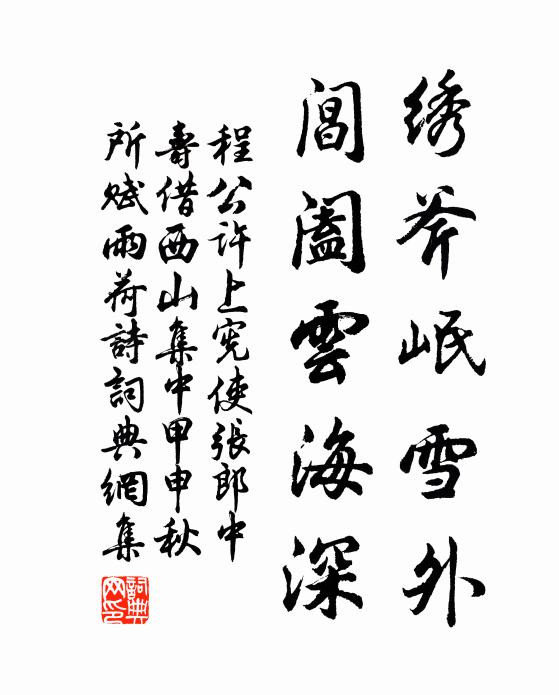 绣斧岷雪外
閶阖雲海深
程公许上宪使張郎中
壽借西山集中甲申秋
所赋雨荷詩詞典網集
詞典网印